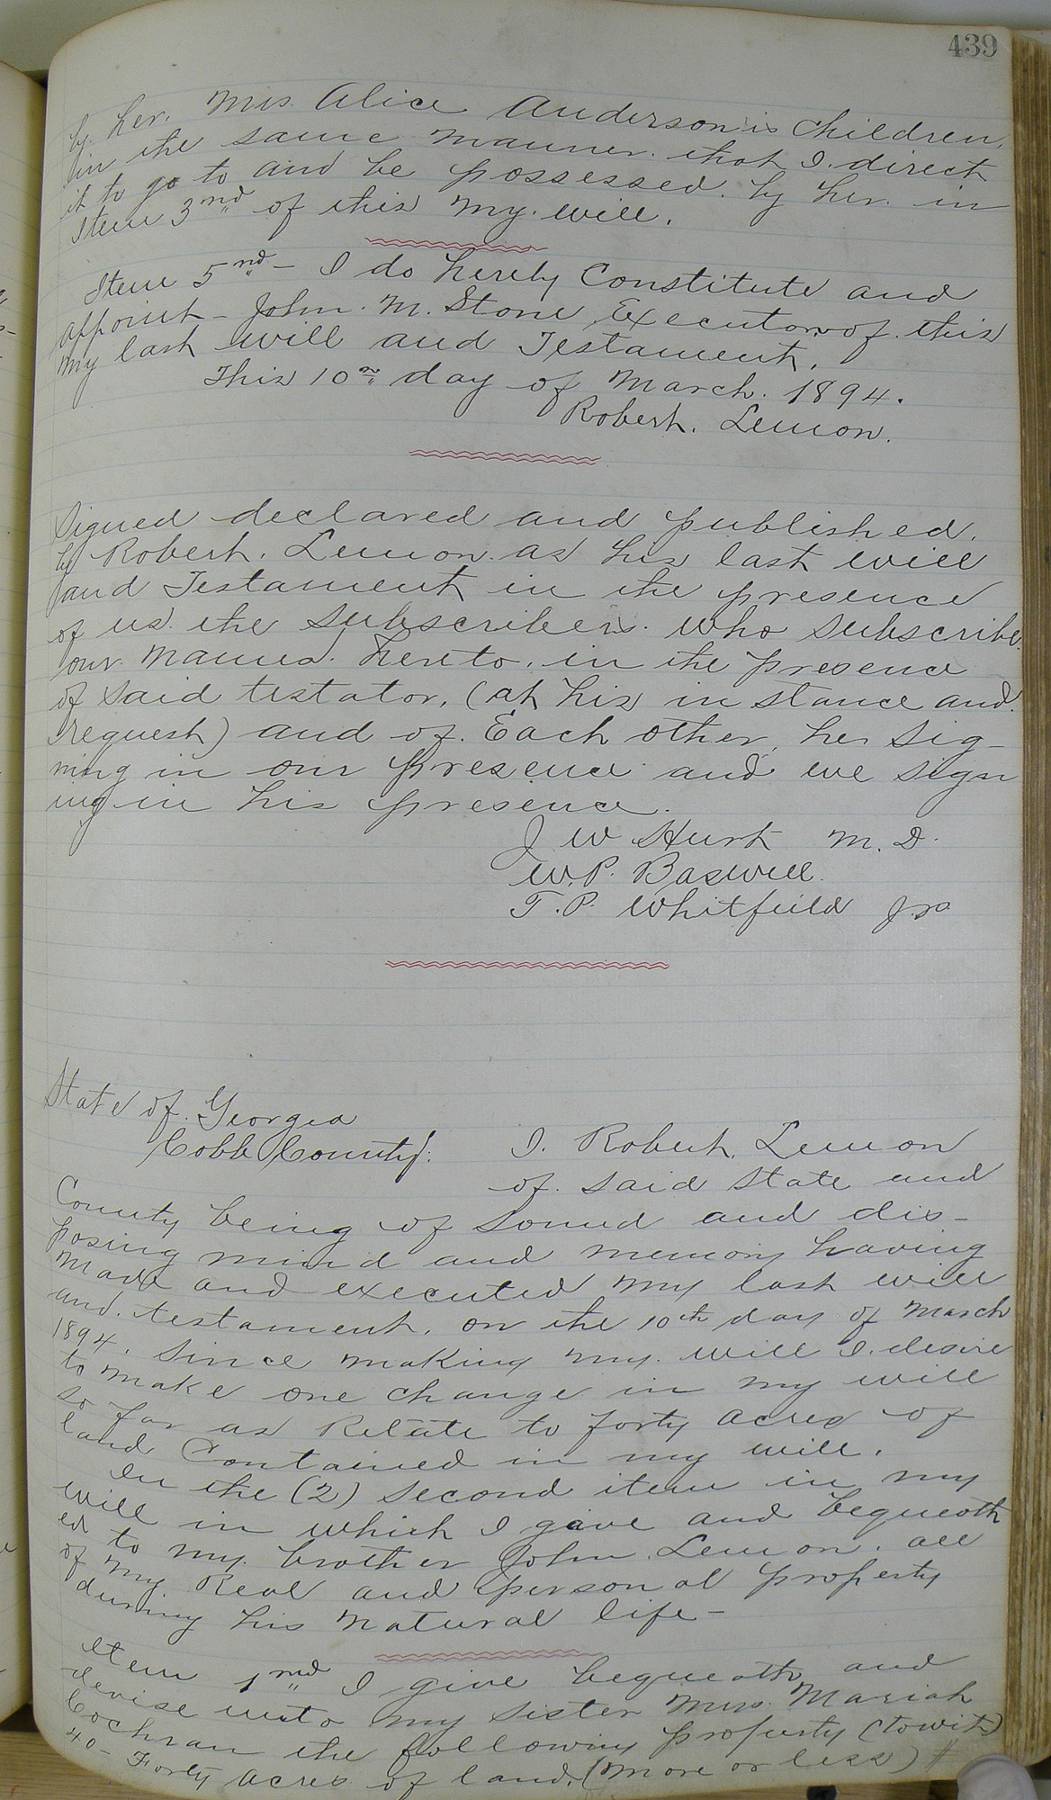 439
by her. Mrs. Alice Anderson's is Children,
in the same manner. that I. direct
it to go to and be possessed. by her. in
Item 3nd of this my. will.
Item 5nd - I do hereby Constitute and
appoint - John. M. Stone Executor of. this
my last will and Testament.
This 10th day of March. 1894.
Robert. Lemon.
Signed declared and published.
by Robert. Lemon. as his last will
and Testament in the presence
of us. the subscribers. who subscribe
our. names. hereto. in the presence
of said testator, (at his in stance and.
request) and of. Each other, he sig-
ning in our presence and we sign
ing in his presence.
J W Hurt M. D.
W. P. Baswell.
T. P. Whitfield Jr
State of. Georgia
Cobb County: I. Robert. Lemon
of. said state and
County being of sound and dis-
posing mind and memory having
made and executed my last will
and. testament, on the 10th day of March
1894. since making my. will I. desire
to make one change in my will
so far as Relate to forty acres of
land Contained in my will.
In the (2) second item in my
will in which I gave and bequeath
ed to my. brother John. Lemon. all
of my Real and personal property
during his natural life -
Item 1nd I give bequeath and
devise unto my sister Mrs. Mariah
Cochran the following property (towit)
40 - Forty acres of land, (more or less) #